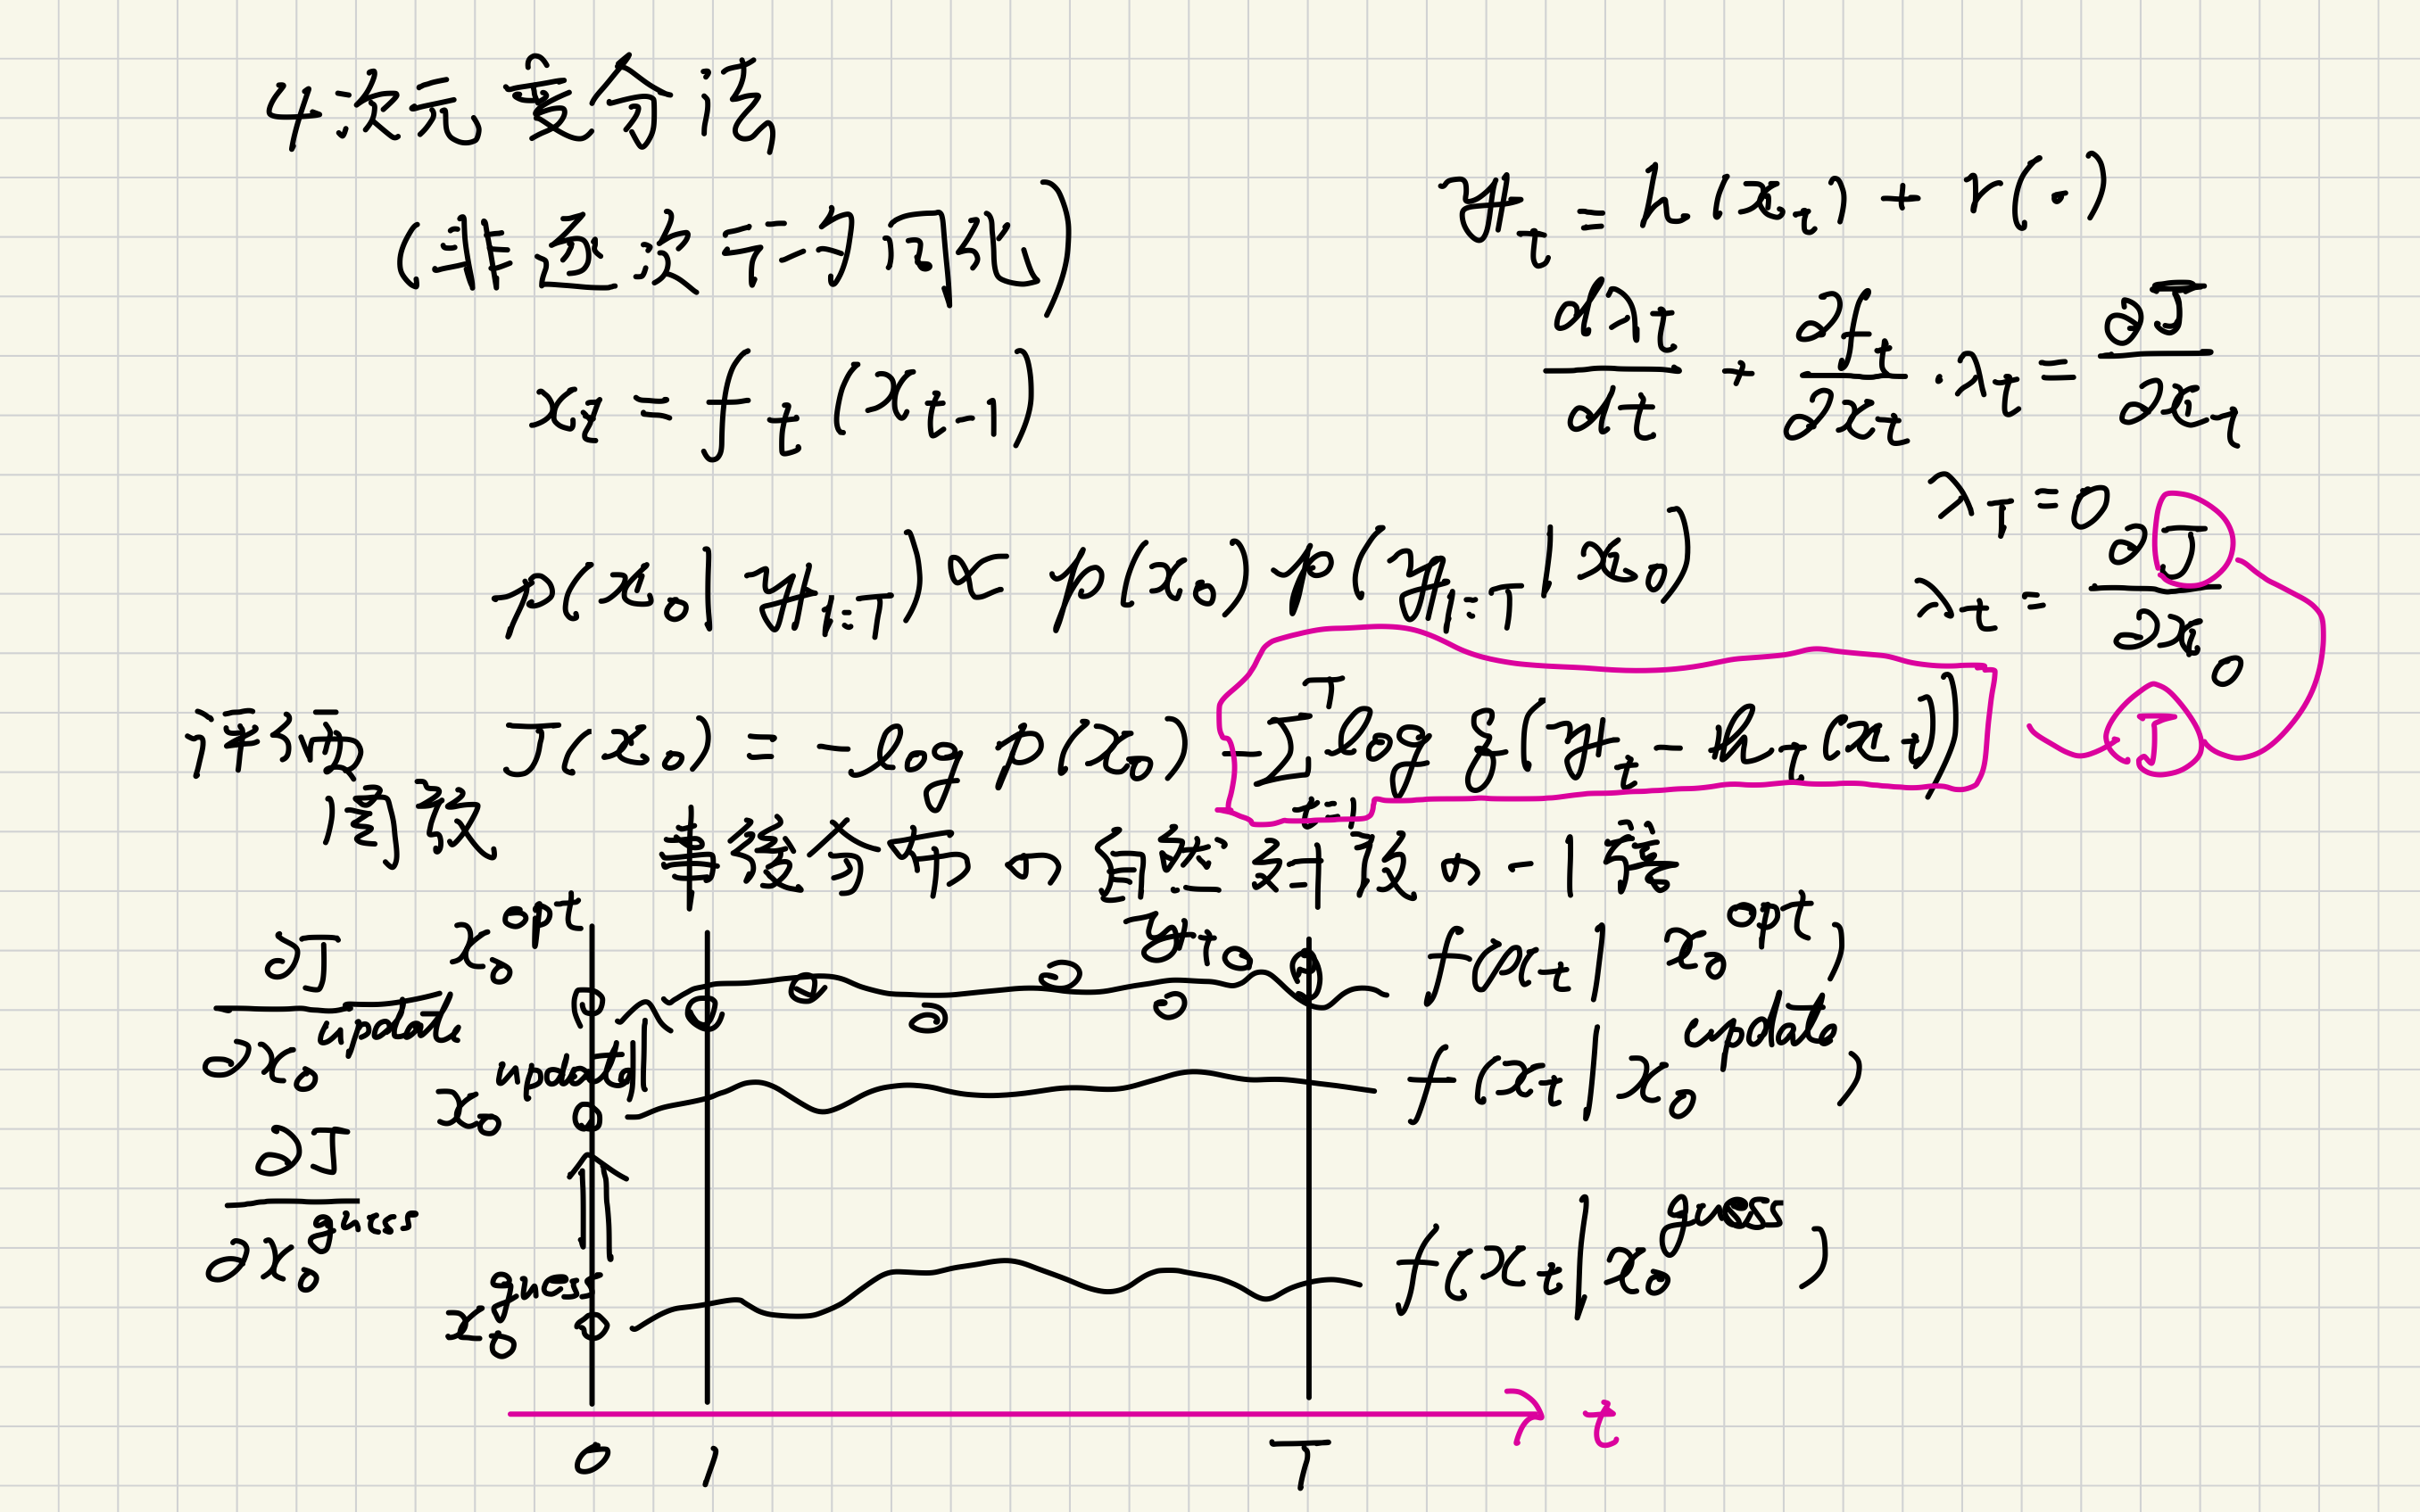 4次元変分法
(非逐次データ同化)
x_t = f_t(x_{t-1})
y_t = h(x_t) + r(・)
dλ_t/dt + ∂f_t/∂x_t · λ_t = ∂J/∂x_t
λ_T = 0
λ_t = ∂J/∂x_0
p(x_0|y_{1:T}) ∝ p(x_0) p(y_{1:T}|x_0)
評価関数 J(x_0) = -log p(x_0) - Σ_{t=1}^T log g(y_t - h_t(x_t))
J
事後分布の自然対数の-1倍
∂J/∂x_0^update
x_0^opt
y_t
f(x_t|x_0^opt)
x_0^update
f(x_t|x_0^update)
∂J/∂x_0^guess
x_0^guess
f(x_t|x_0^guess)
t
0 1 T